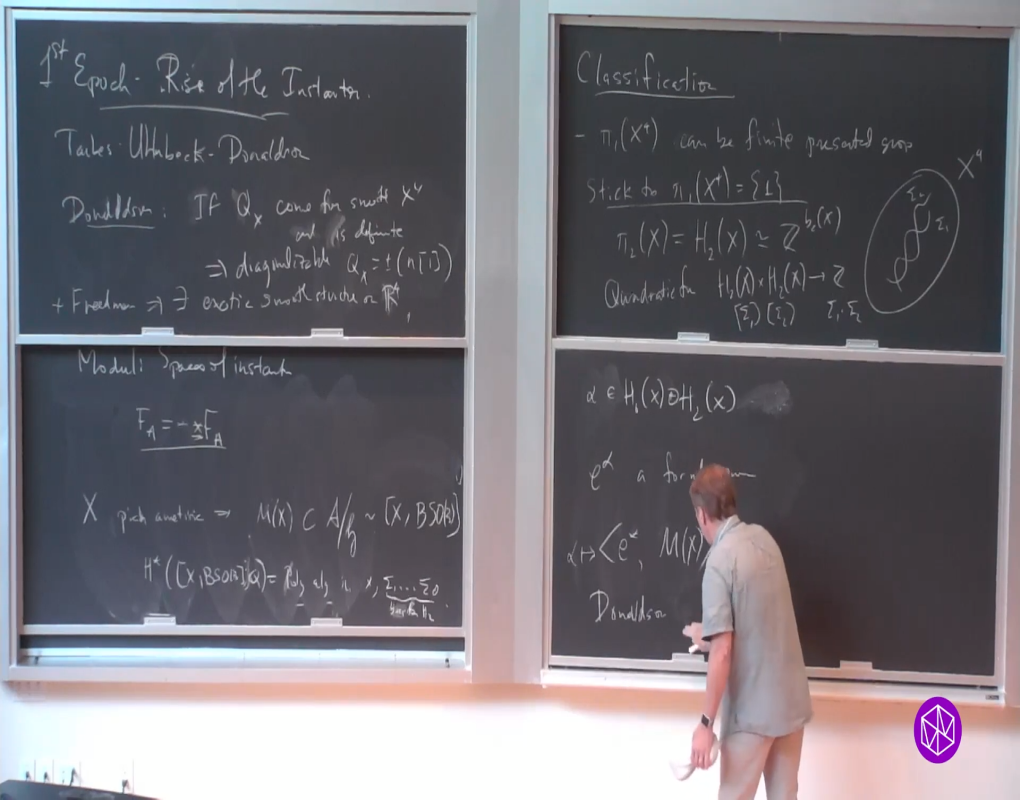 1st Epoch - Rise of the Instanton.
Taubes - Uhlenbeck - Donaldson
Donaldson: If Q_X come from smooth X^4
and is definite
⇒ diagonalizable Q_X = ±(n[1])
+ Freedman ⇒ ∃ exotic smooth structure on ℝ^4,
Moduli Spaces of instant
F_A = - *F_A
X pick a metric ⇒ M(X) ⊂ A/G ~ [X, BSO(3)]
H*([X, BSO(3)], Q) = Poly alg in x, Σ_1 ... Σ_b
H_2
Classification
- π_1(X^4) can be finite presented group
Stick to π_1(X^4) = {1}
π_2(X) = H_2(X) ≃ ℤ^{b_2(X)}
Quadratic fm H_2(X) × H_2(X) → ℤ
[Σ_1] [Σ_2] Σ_1 · Σ_2
X^4
Σ_2
Σ_1
α ∈ H_0(X) ⊕ H_2(X)
e^α a formal
α ↦ <e^α, M(X)
Donaldson